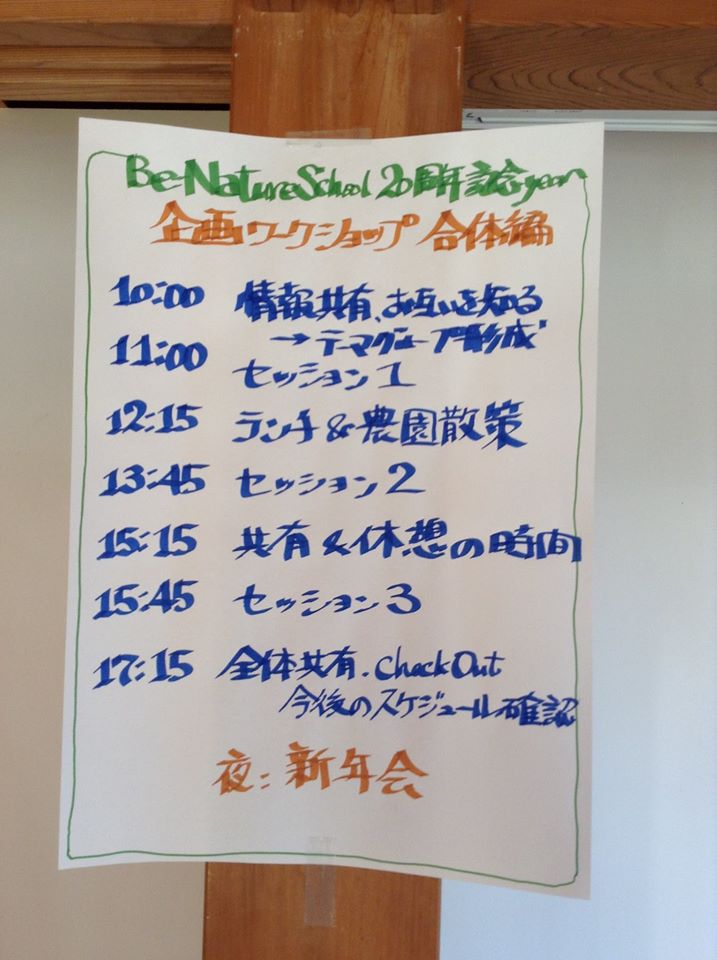 Be-Nature School 20周年記念year
企画ワークショップ 合体編
10:00 情報共有、お互いを知る
→テーマグループ形成
11:00 セッション1
12:15 ランチ&農園散策
13:45 セッション2
15:15 共有&休想の時間
15:45 セッション3
17:15 全体共有.CheckOut
今後のスケジュール確認
夜:新年会